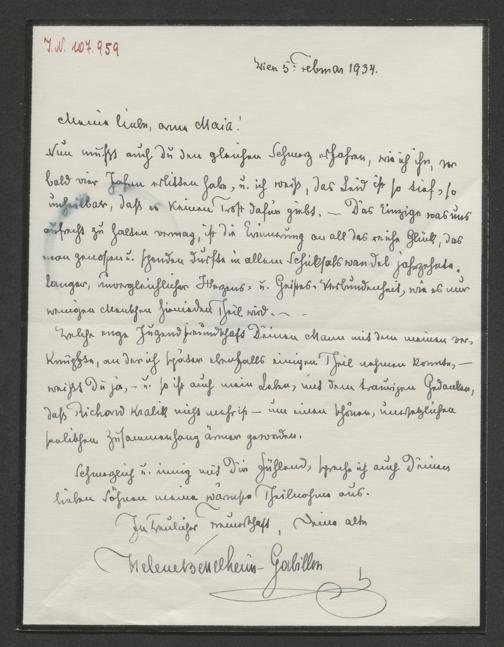 I.N. 107.959
Wien 5. Februar 1934.
Meine liebe, arme Maia!
Nun mußt auch Du den gleichen Schmerz erfahren, wie ich ihn, vor
bald vier Jahren erlitten habe, u. ich weiß, das Leid ist so tief, so
unheilbar, daß es keinen Trost dafür giebt. — Das Einzige was uns
aufrecht zu halten vermag, ist die Erinnerung an all das reiche Glück, das
man genossen u. spenden durfte in allem Schicksalswandel jahrzehnte-
langer, unvergleichlicher Herzens- u. Geistes-Verbundenheit, wie es nur
wenigen Menschen hienieden Theil wird. — —
Welche enge Jugendfreundschaft Deinen Mann mit dem meinen ver-
knüpfte, an der ich später ebenfalls einigen Theil nehmen konnte, —
weißt Du ja, — u. so ist auch mein Leben, mit dem traurigen Gedanken,
daß Richard Kralik nicht mehr ist — um einen schönen, unersetzlichen
seelischen Zusammenhang ärmer geworden.
Schmerzlich u. innig mit Dir fühlend, spreche ich auch Deinen
lieben Söhnen meine wärmste Theilnahme aus.
In treulicher Freundschaft, Deine alte
Helene Bettelheim-Gabillon